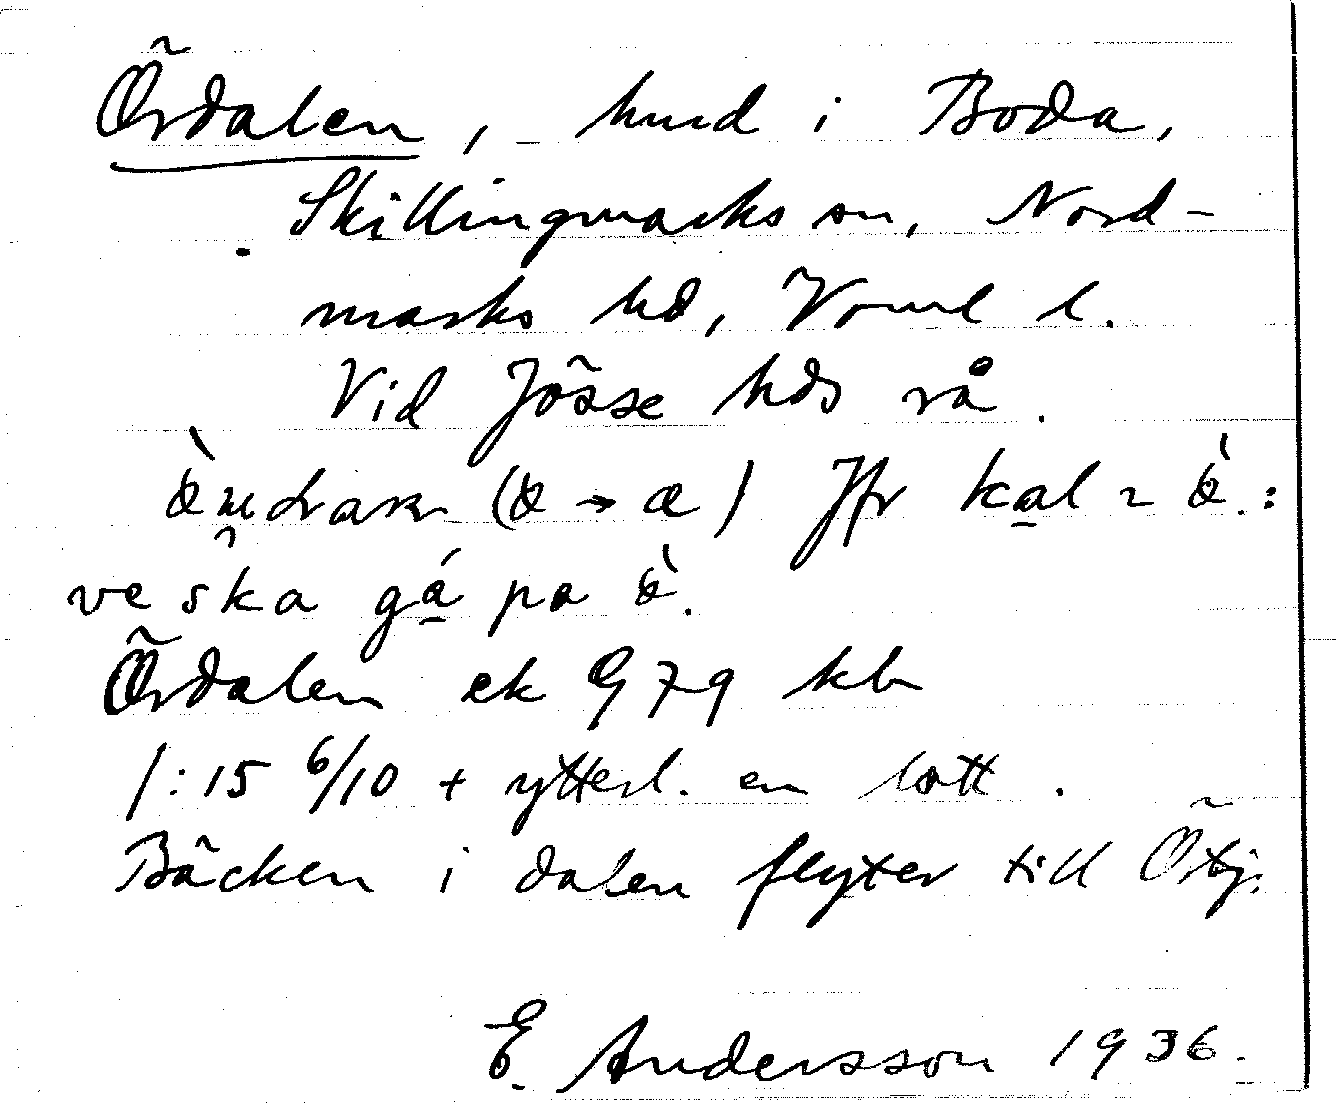 Ördalen, hmd i Boda,
Skillingmarks sn, Nord-
marks hd, Vrml l.
Vid Jösse hds rå.
(ö → æ) Jfr kal
ve ska gá pa ö̀.
Ördalen ek 979 kb
1:15 6/10 + ytterl. en lott.
Bäcken i dalen flyter till Örtj.
E. Andersson 1936.